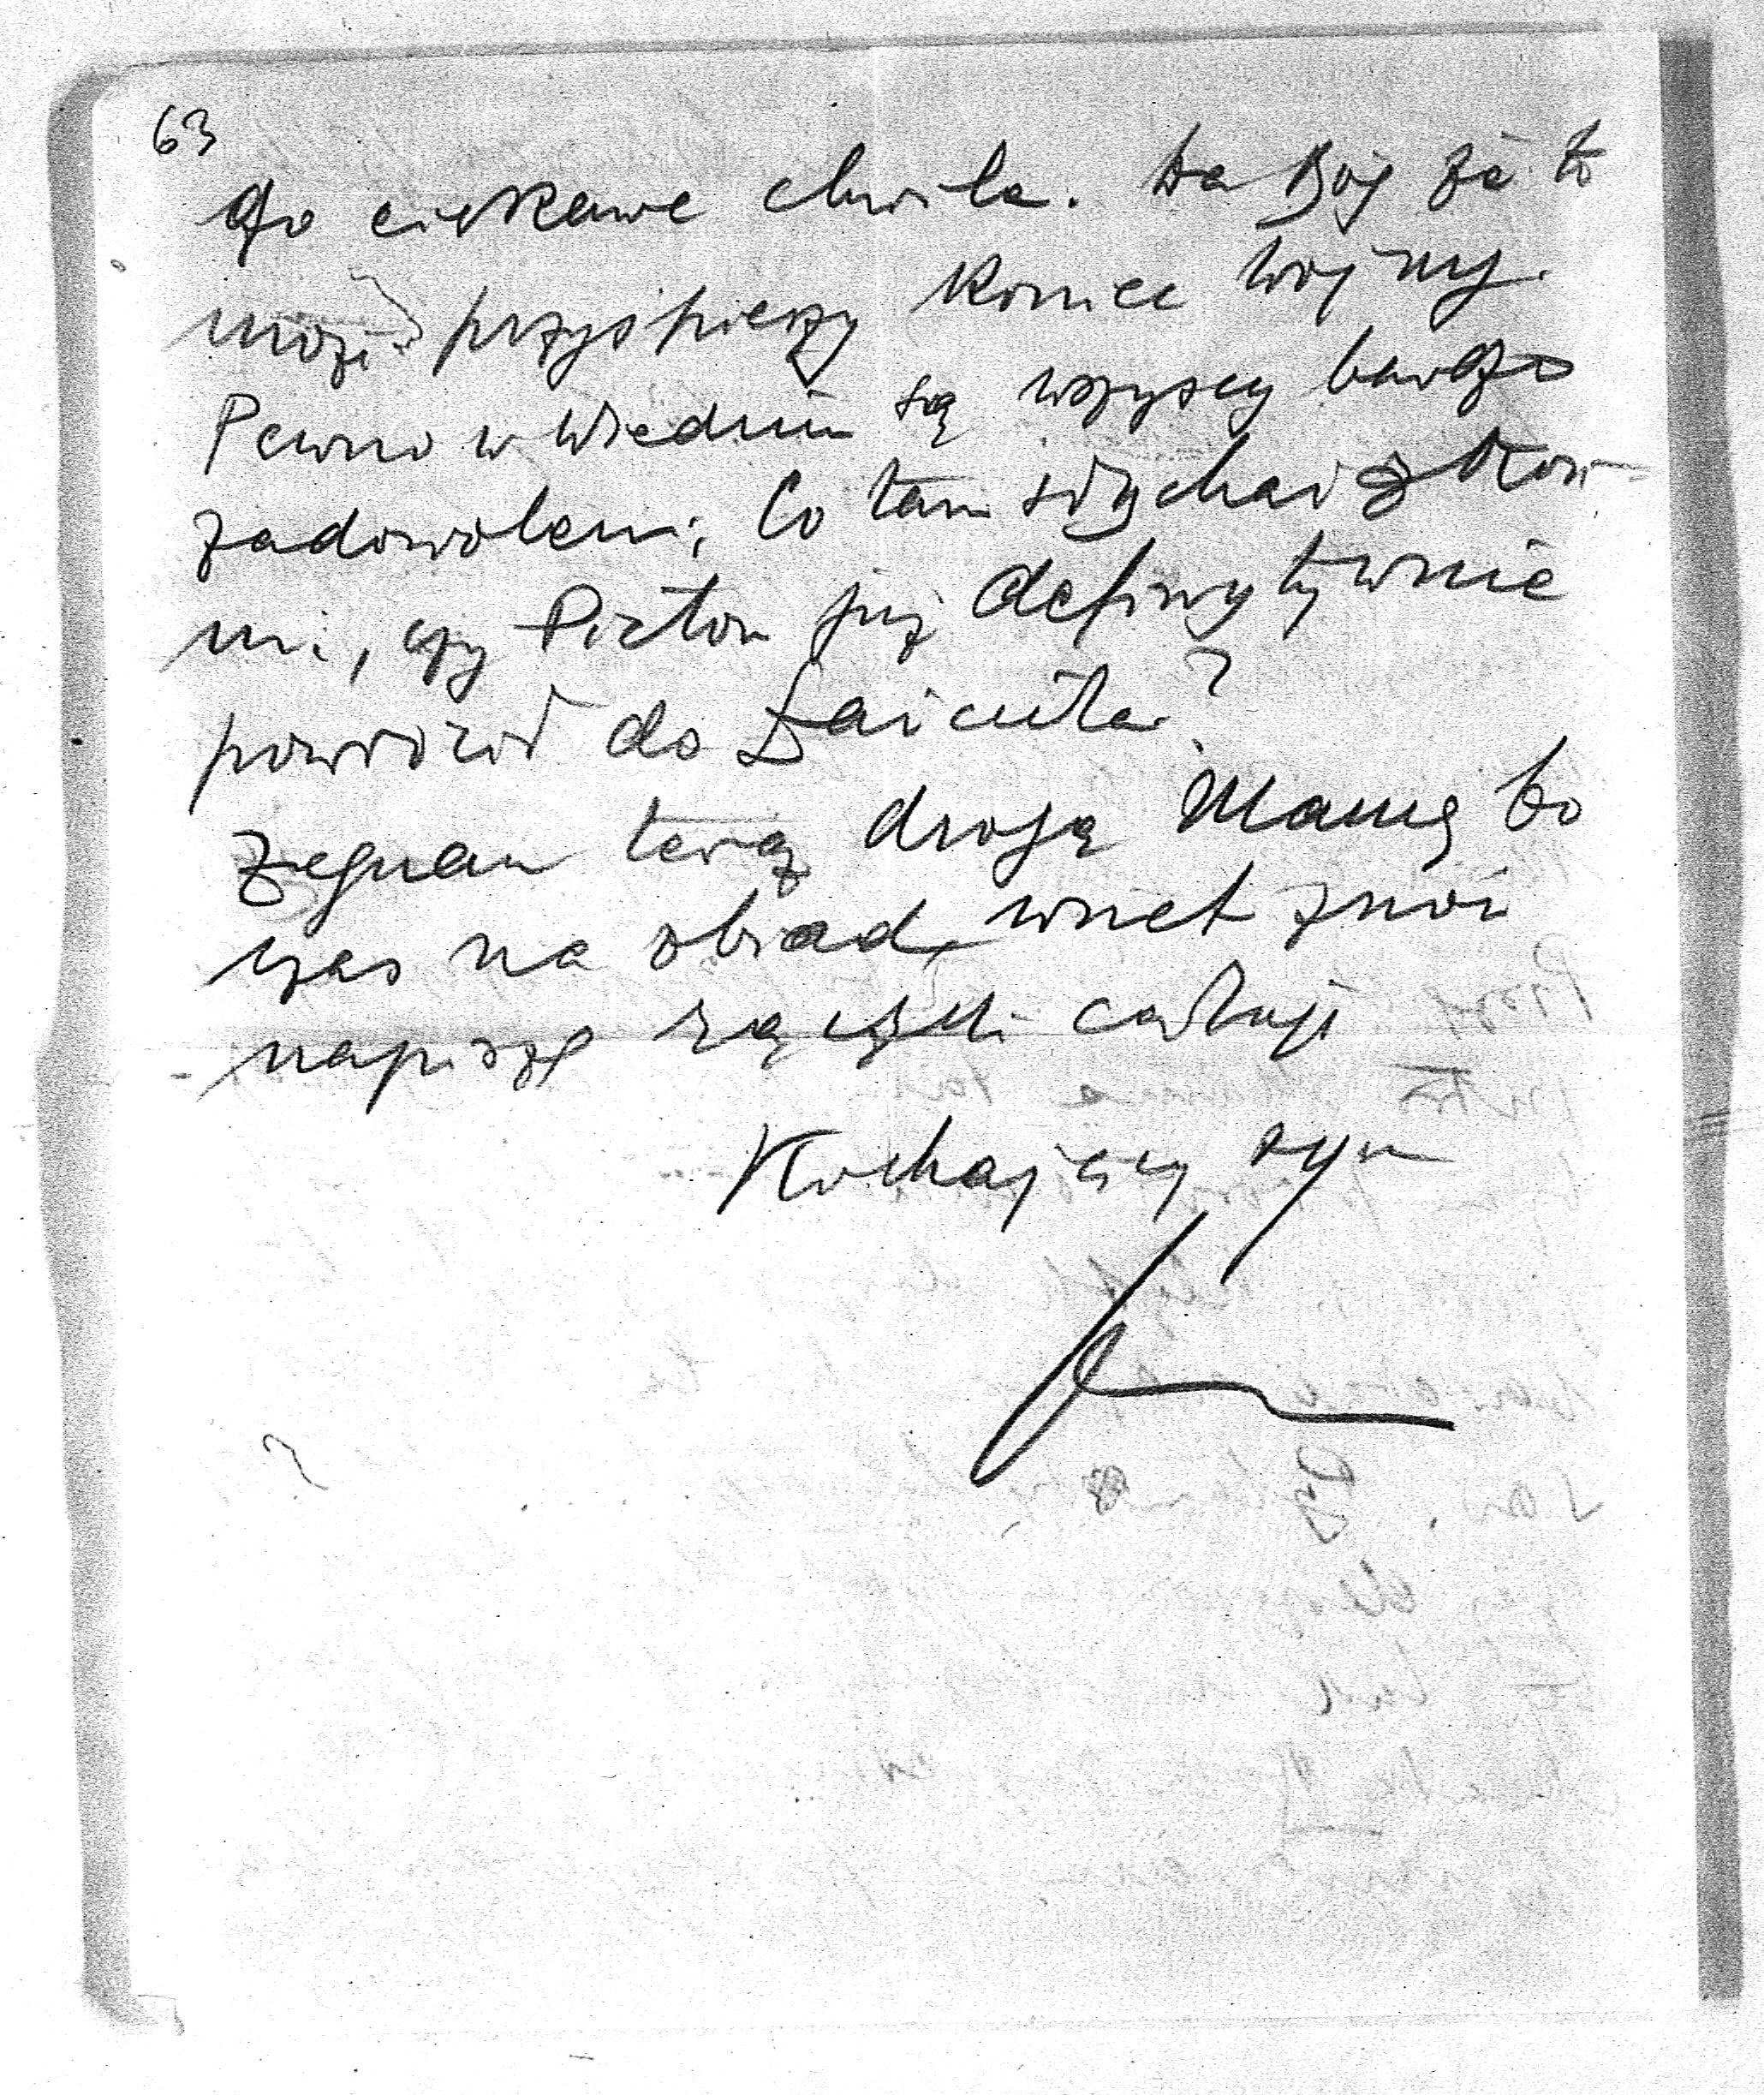 63
dzo ciekawe chwile. Da Bóg że to
może przyśpieszy koniec wojny.
Pewno w Wiedniu są wszyscy bardzo
zadowoleni; Co tam słychać z
mi, czy Piston już definytywnie
powrócił do Łańcuta?
Żegnam teraz drogą Mamę bo
czas na obiad, wnet znów
napiszę rączki całuję
Kochający syn